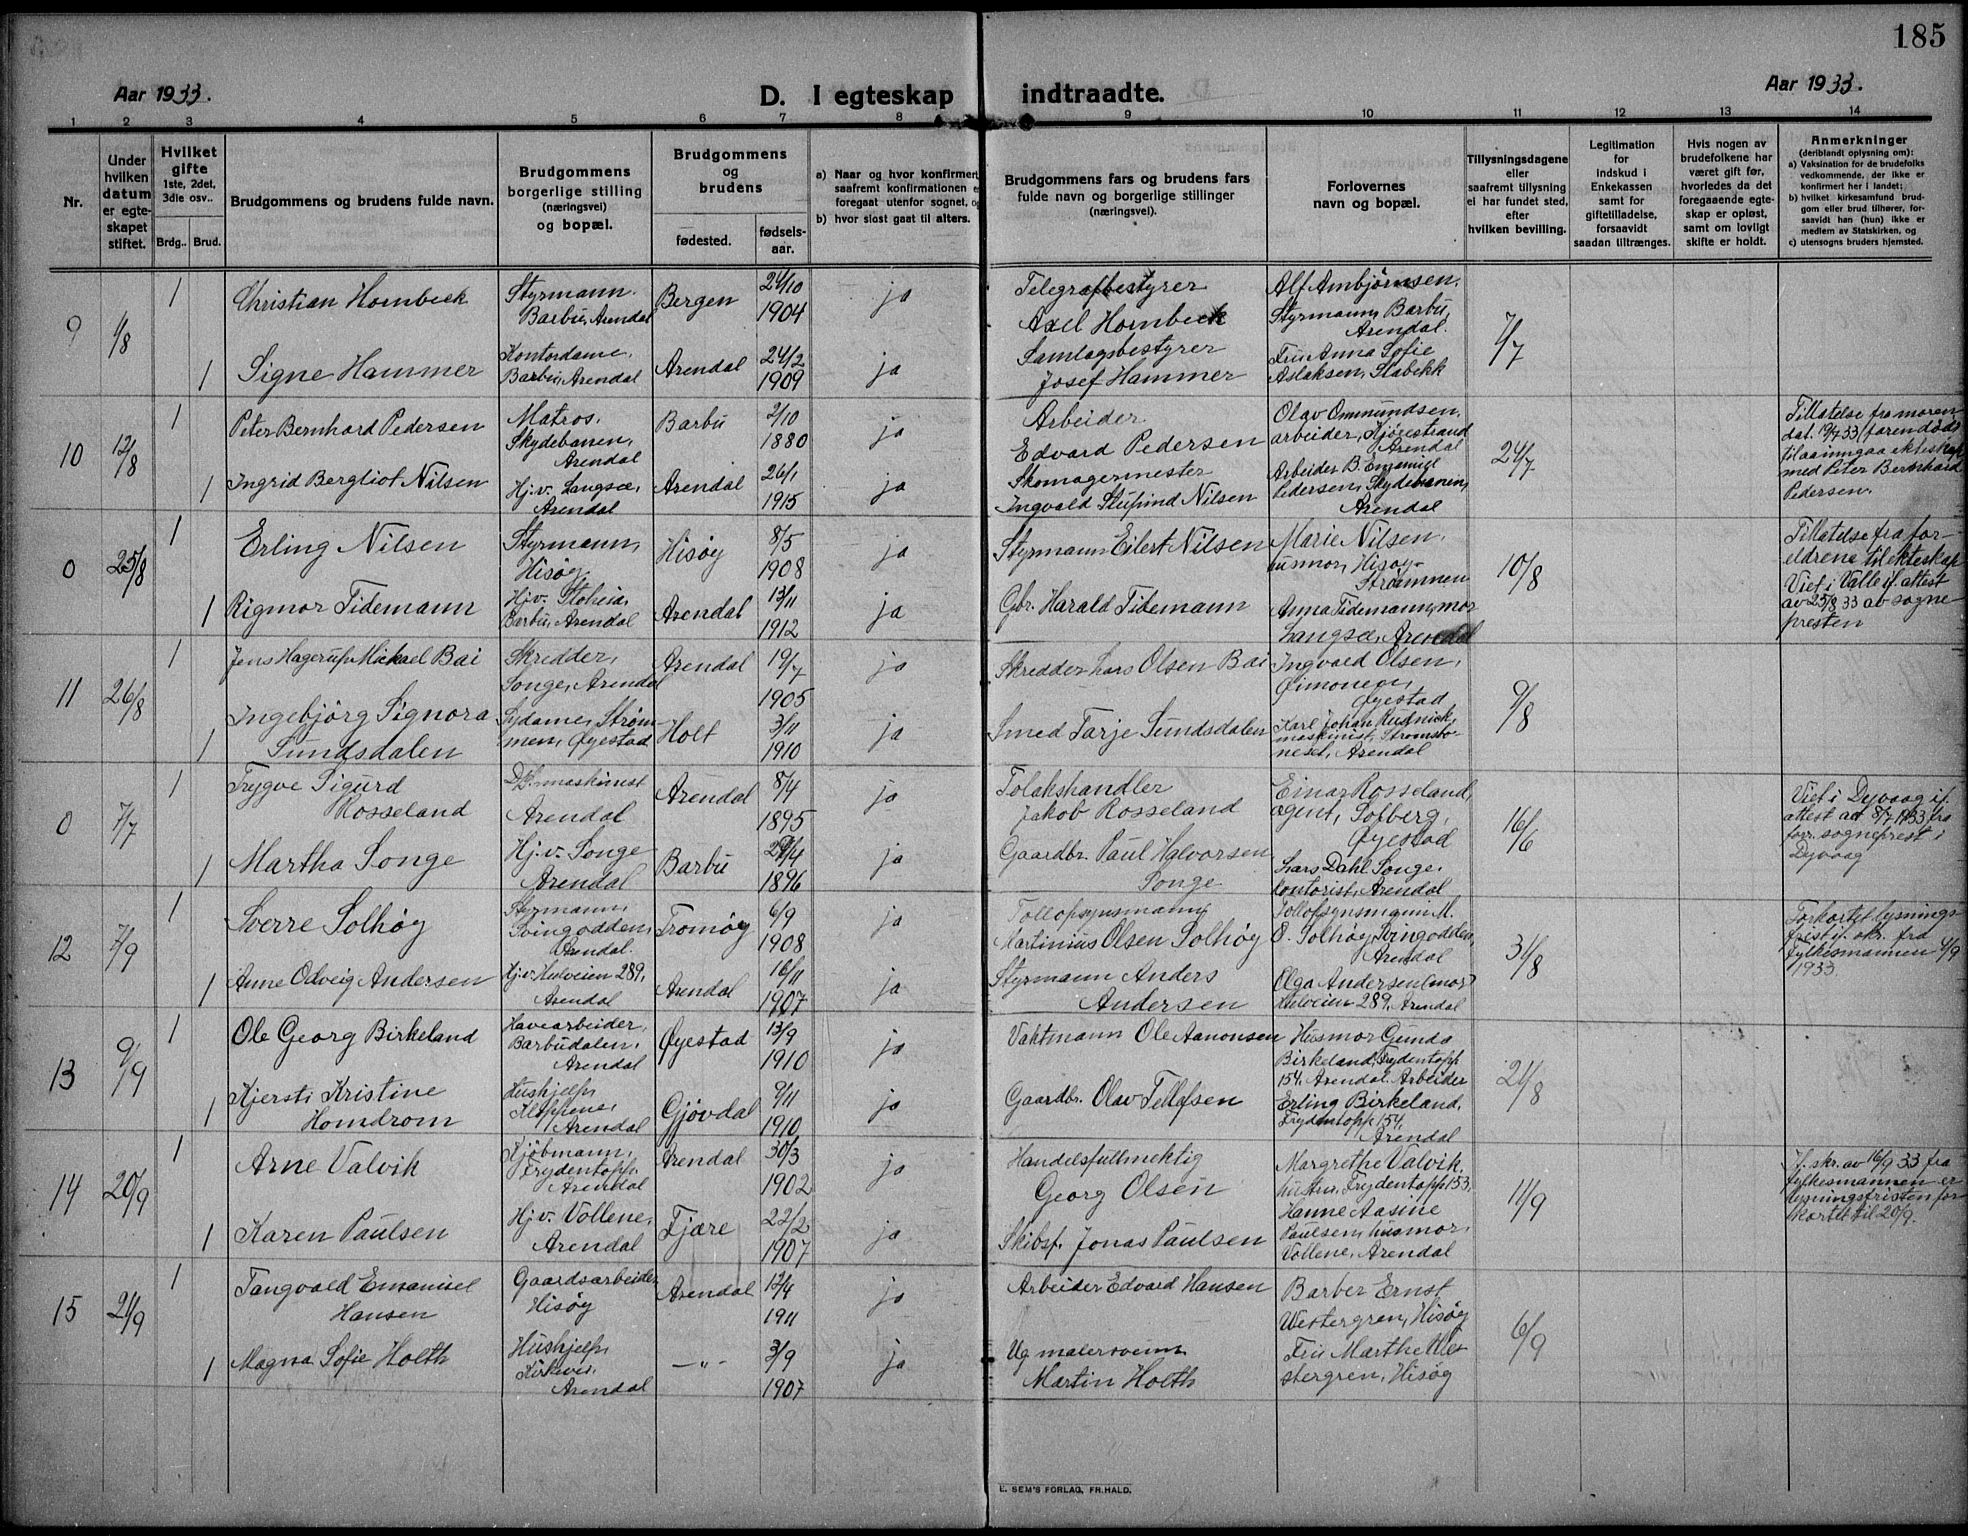 185
Aar 1933.
D. I egteskap indtraadte.
Aar 1933.
1 2 3 4 5 6 7 8 9 10 11 12 13 14
Nr.
Under hvilken datum er egteskapet stiftet.
Hvilket gifte 1ste, 2det, 3die osv..
Brdg.. Brud.
Brudgommens og brudens fulde navn.
Brudgommens borgerlige stilling (næringsvei) og bopæl.
Brudgommens og brudens
fødested. fødsels-aar.
a) Naar og hvor konfirmert, saafremt konfirmationen er foregaat utenfor sognet, og
b) hvor sidst gaat til alters.
Brudgommens fars og brudens fars fulde navn og borgerlige stillinger (næringsvei).
Forlovernes navn og bopæl.
Tillysningsdagene eller saafremt tillysning ei har fundet sted, efter hvilken bevilling.
Legitimation for indskud i Enkekassen samt for giftetilladelse, forsaavidt saadan tiltrænges.
Hvis nogen av brudefolkene har været gift før, hvorledes da det foregaaende egteskap er opløst, samt om lovligt skifte er holdt.
Anmerkninger (deriblandt oplysning om):
a) Vaksination for de brudefolks vedkommende, der ikke er konfirmert her i landet;
b) hvilket kirkesamfund brudgom eller brud tilhører, forsaavidt han (hun) ikke er medlem av Statskirken, og
c) utensogns bruders hjemsted.
9 1/8 1 Christian Hornbeck Styrmann. Barbu, Arendal Bergen 24/10 1904 ja Telegrafbestyrer Axel Hornbeck Alf Ambjørnsen, Styrmann, Barbu, Arendal. 7/7
1 Signe Hammer Kontordame, Barbu, Arendal Arendal 24/2 1909 ja Samlagsbestyrer Josef Hammer Fru Anna Sofie Aslaksen, Stabekk
10 12/8 1 Peter Bernhard Pedersen Matros, Skydebanen, Arendal Barbu 2/10 1880 ja Arbeider Edvard Pedersen Olav Ommundsen, arbeider, Arendal 24/7 Tillatelse fra moren dat. 19/7 33 (faren død) til aa inngaa ekteskap med Peter Bernhard Pedersen.
1 Ingrid Bergliot Nilsen Hj.v. Langsæ, Arendal Arendal 26/1 1915 ja Skomagermester Ingvald Nilsen Arbeider B. Emanuel Pedersen, Skydebanen, Arendal
0 25/8 1 Erling Nilsen Styrmann, Hisøy Hisøy 8/5 1908 ja Styrmann Eilert Nilsen Marie Nilsen, husmor, Hisøy-Strømmen 10/8 Tillatelse fra foreldrene til ekteskap Viet i Valle if. attest av 25/8 33 av sognepresten
1 Rigmor Tidemann Hj.v. Barbu, Arendal Arendal 13/11 1912 ja Gbr. Harald Tidemann Anna Tidemann, mor Langsæ, Arendal
11 26/8 1 Jens Hagerup Mickael Bai Skredder, Songe, Arendal Arendal 19/7 1905 ja Skredder Lars Olsen Bai Ingvald Olsen, Øyestad 9/8
1 Ingebjørg Signora Sundsdalen Sydame, Strømmen, Øyestad Holt 3/11 1910 ja Smed Tarje Sundsdalen Karl Johan Rudnick, maskinist, Strømsboneset, Arendal
0 7/7 1 Trygve Sigurd Rosseland D/S. maskinist Arendal Arendal 8/4 1895 ja Tolakshandler Jakob Rosseland Einar Rosseland, agent, Solberg, Øyestad 16/6 Viet i Dyvaag if. attest ad 8/7 1933 fra forr. sogneprest i Dyvaag
1 Martha Songe Hj.v. Songe Arendal Barbu 29/4 1896 ja Gaardbr. Paul Halvorsen Songe Lars Dahl Songe, kontorist, Arendal
12 7/9 1 Sverre Solhøy Styrmann, Svingodden, Arendal Tromøy 6/9 1908 ja Tollopsynsmann Martinius Olsen Solhøy Tollopsynsmann M. O. Solhøy, Svingodden, Arendal 31/8 Forkortet lysningsfrist if. skr. fra fylkesmannen 4/9 1933.
1 Anne Odveig Andersen Hj.v. Hulveien 289, Arendal Arendal 16/11 1907 ja Styrmann Anders Andersen Olga Andersen (mor) Hulveien 289, Arendal
13 9/9 1 Ole Georg Birkeland Havearbeider, Barbudalen, Arendal Øyestad 13/9 1910 ja Vaktmann Ole Aanonsen Husmor Gunda Birkeland, Frydentopp 154, Arendal. Arbeider 21/8
1 Kjersti Kristine Homdrom Hushjelp, Kloppene, Arendal Gjøvdal 9/11 1910 ja Gaardbr. Olav Tellefsen Erling Birkeland, Frydentopp 154, Arendal
14 20/9 1 Arne Valvik Kjøbmann, Frydentopp, Arendal Arendal 30/3 1902 ja Handelsfullmektig Georg Olsen Margrethe Valvik, hustru, Frydentopp 153, 11/9 If. skr. av 16/9 33 fra fylkesmannen er lysningsfristen forkortet til 20/9.
1 Karen Paulsen Hj.v. Vollene, Arendal Fjære 22/2 1907 ja Skibsf. Jonas Paulsen Hanne Aasine Paulsen, husmor, Vollene, Arendal
15 21/9 1 Tangvald Emanuel Hansen Gaardsarbeider Hisøy Arendal 12/4 1911 ja Arbeider Edvard Hansen Barber Ernst Westergren, Hisøy 6/9
1 Magna Sofie Holth Hushjelp, Kirkevei, Arendal —„— 3/9 1907 ja Ug malersvenn Martin Holth Fru Marthe Westergren, Hisøy
E. SEM'S FORLAG, FR.HALD.